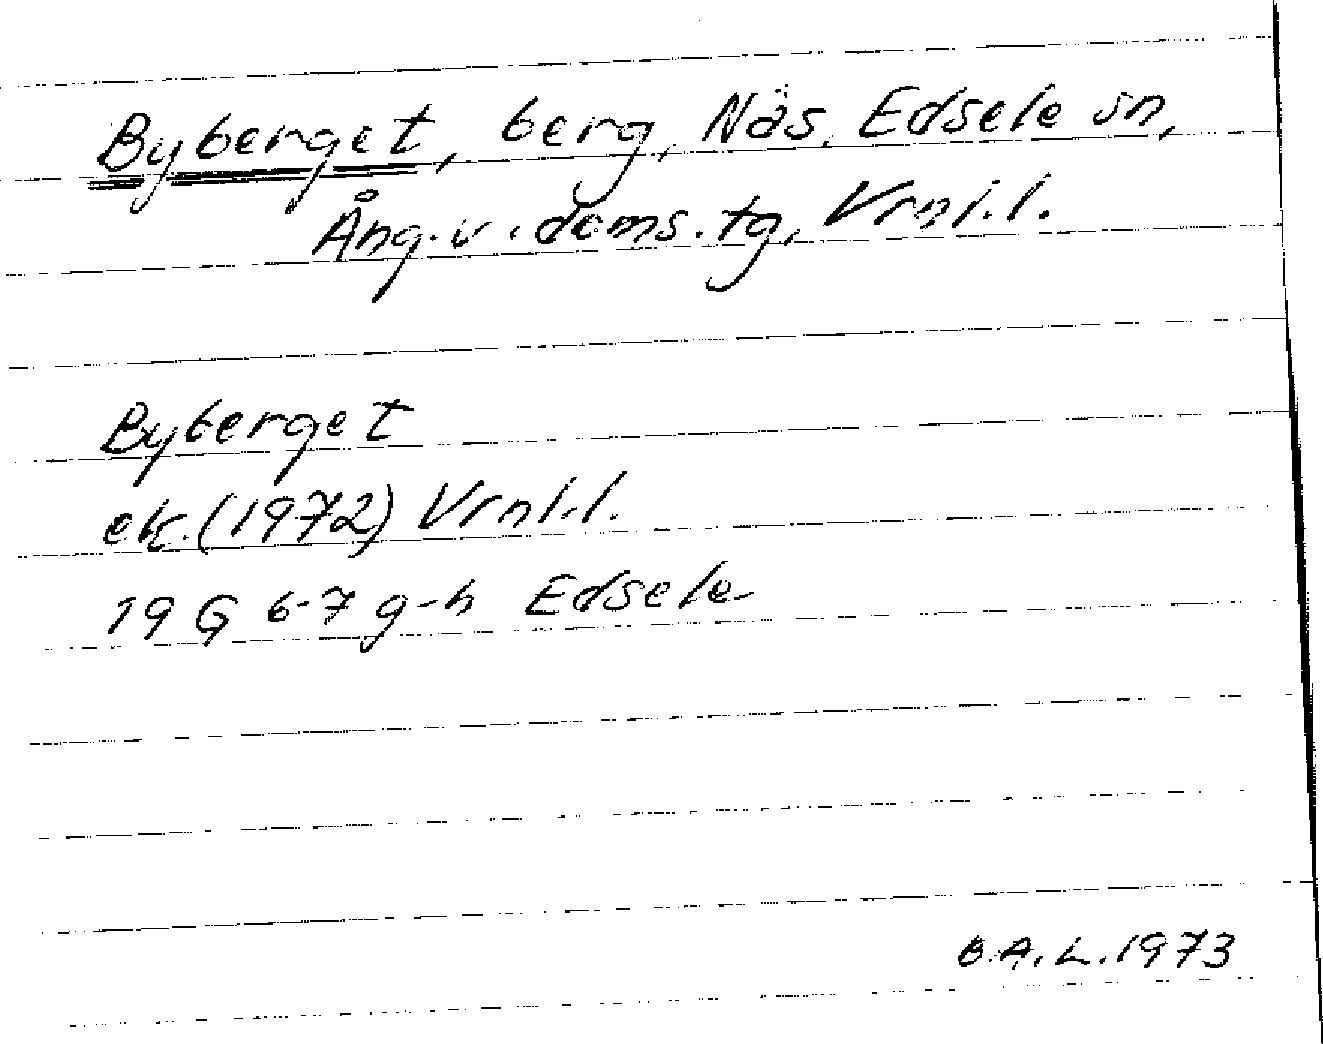 Byberget, berg, Näs, Edsele sn,
Ång.v.doms.tg, Vrnl.l.
Byberget
ek.(1972) Vrnl.l.
19 G 6-7 g-h Edsele
B.A.L.1973